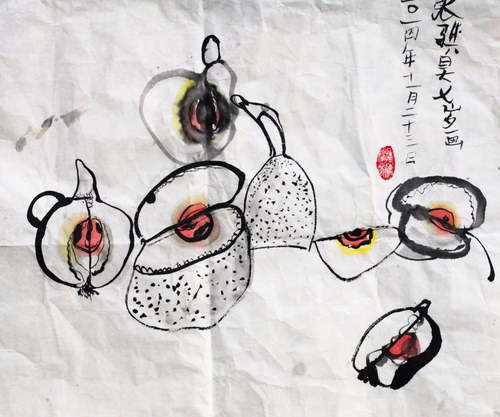 骐昊七岁画
〇一四年十一月二十三日